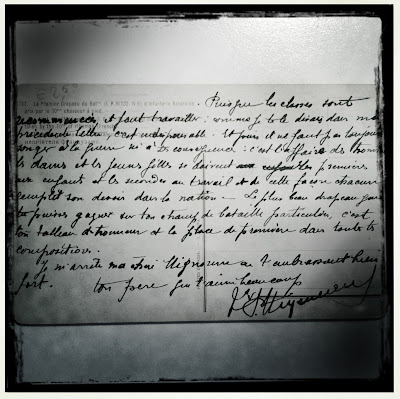 Puisque les classes sont
recommencées, il faut travailler : comme je te le disais dans ma
précédente lettre, c'est indispensable. Et puis il ne faut pas toujours
songer à la guerre ni à ses conséquences : c'est l'affaire des hommes
les dames et les jeunes filles se doivent les premières
aux enfants et les secondes au travail et de cette façon chacun
remplit son devoir dans la nation. Le plus beau drapeau que
tu puisses gagner sur ton champ de bataille particulier, c'est
ton tableau d'honneur et la place de première dans toutes tes
compositions.
Je m'arrête ma chère Mignonne en t'embrassant bien
fort. Ton père qui t'aime beaucoup